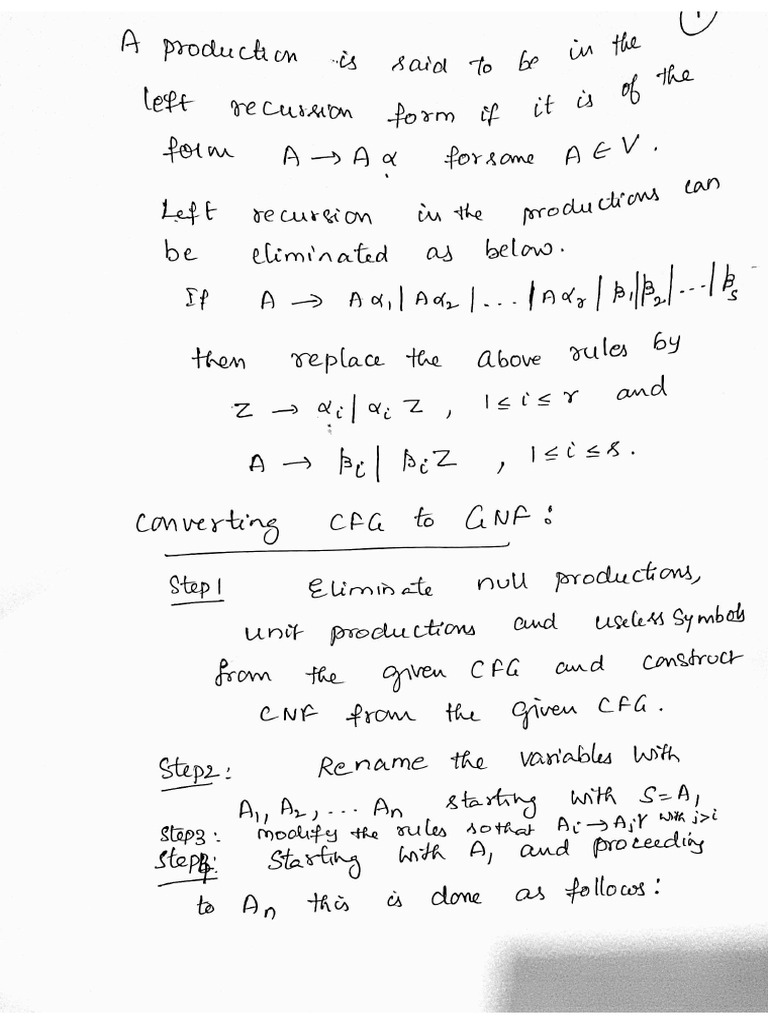 1
A production is said to be in the
left recursion form if it is of the
form A → A α for some A ∈ V.
Left recursion in the productions can
be eliminated as below.
If A → Aα₁ | Aα₂ | ... | Aαᵣ | β₁ | β₂ | ... | βₛ
then replace the above rules by
Z → αᵢ | αᵢ Z , 1 ≤ i ≤ r and
A → βᵢ | βᵢ Z , 1 ≤ i ≤ s.
Converting CFG to GNF :
Step 1 Eliminate null productions,
unit productions and useless symbols
from the given CFG and construct
CNF from the given CFG.
Step 2 : Rename the variables with
A₁, A₂, ... Aₙ starting with S = A₁
Step 3 : modify the rules so that Aᵢ → Aⱼγ with j>i
Step 4 : Starting with A₁ and proceeding
to Aₙ this is done as follows :